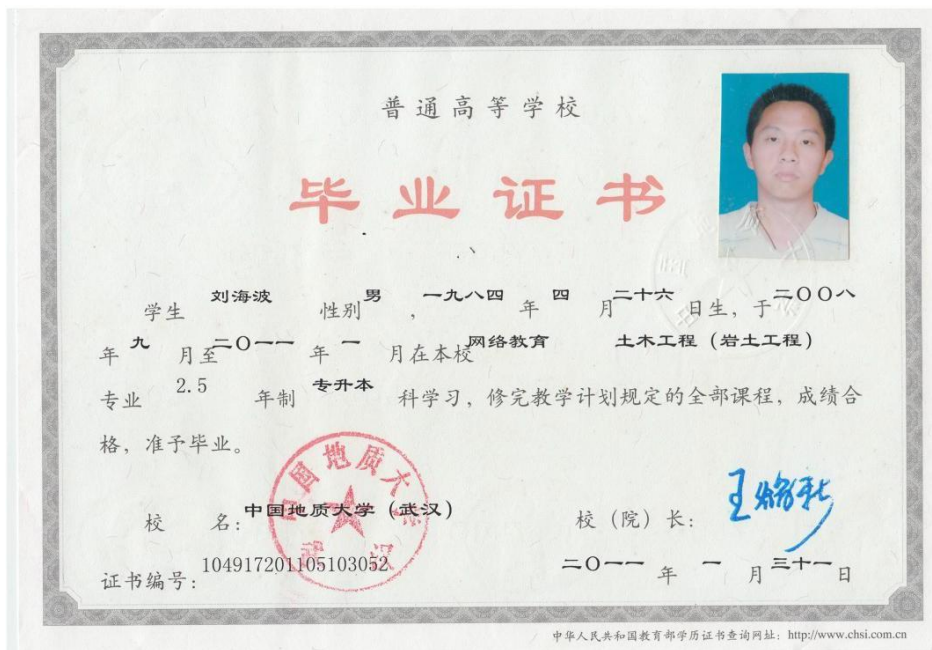 普通高等学校
毕业证书
学生 刘海波 性别 男 ，一九八四 年 四 月 二十六 日生，于 二〇〇八
年 九 月至 二〇一一 年 一 月在本校 网络教育 土木工程（岩土工程）
专业 2.5 年制 专升本 科学习，修完教学计划规定的全部课程，成绩合
格，准予毕业。
中国地质大学
校 名：中国地质大学（武汉） 校（院）长：王焰新
证书编号：104917201105103052 二〇一一 年 一 月 三十一 日
中华人民共和国教育部学历证书查询网址：http://www.chsi.com.cn